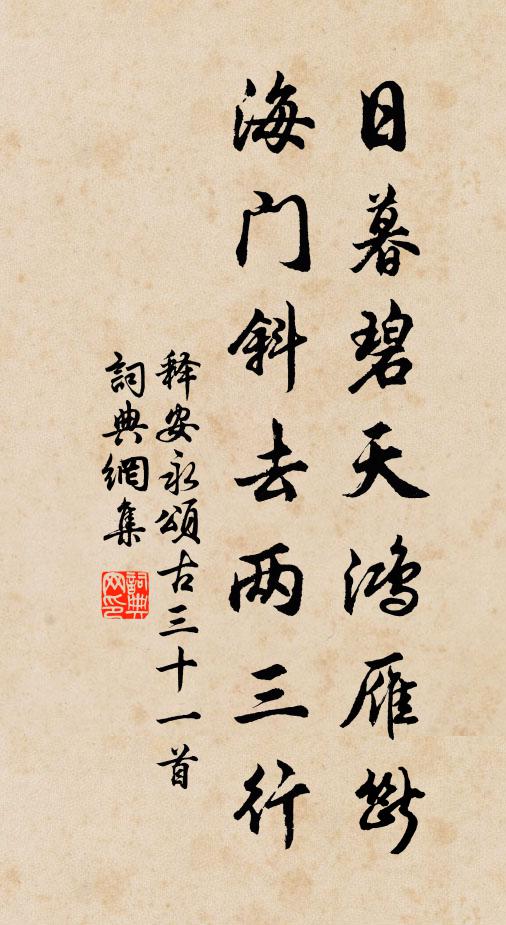 日暮碧天鸿雁断
海门斜去两三行
释安永頌古三十一首
詞典網集
詞典网印